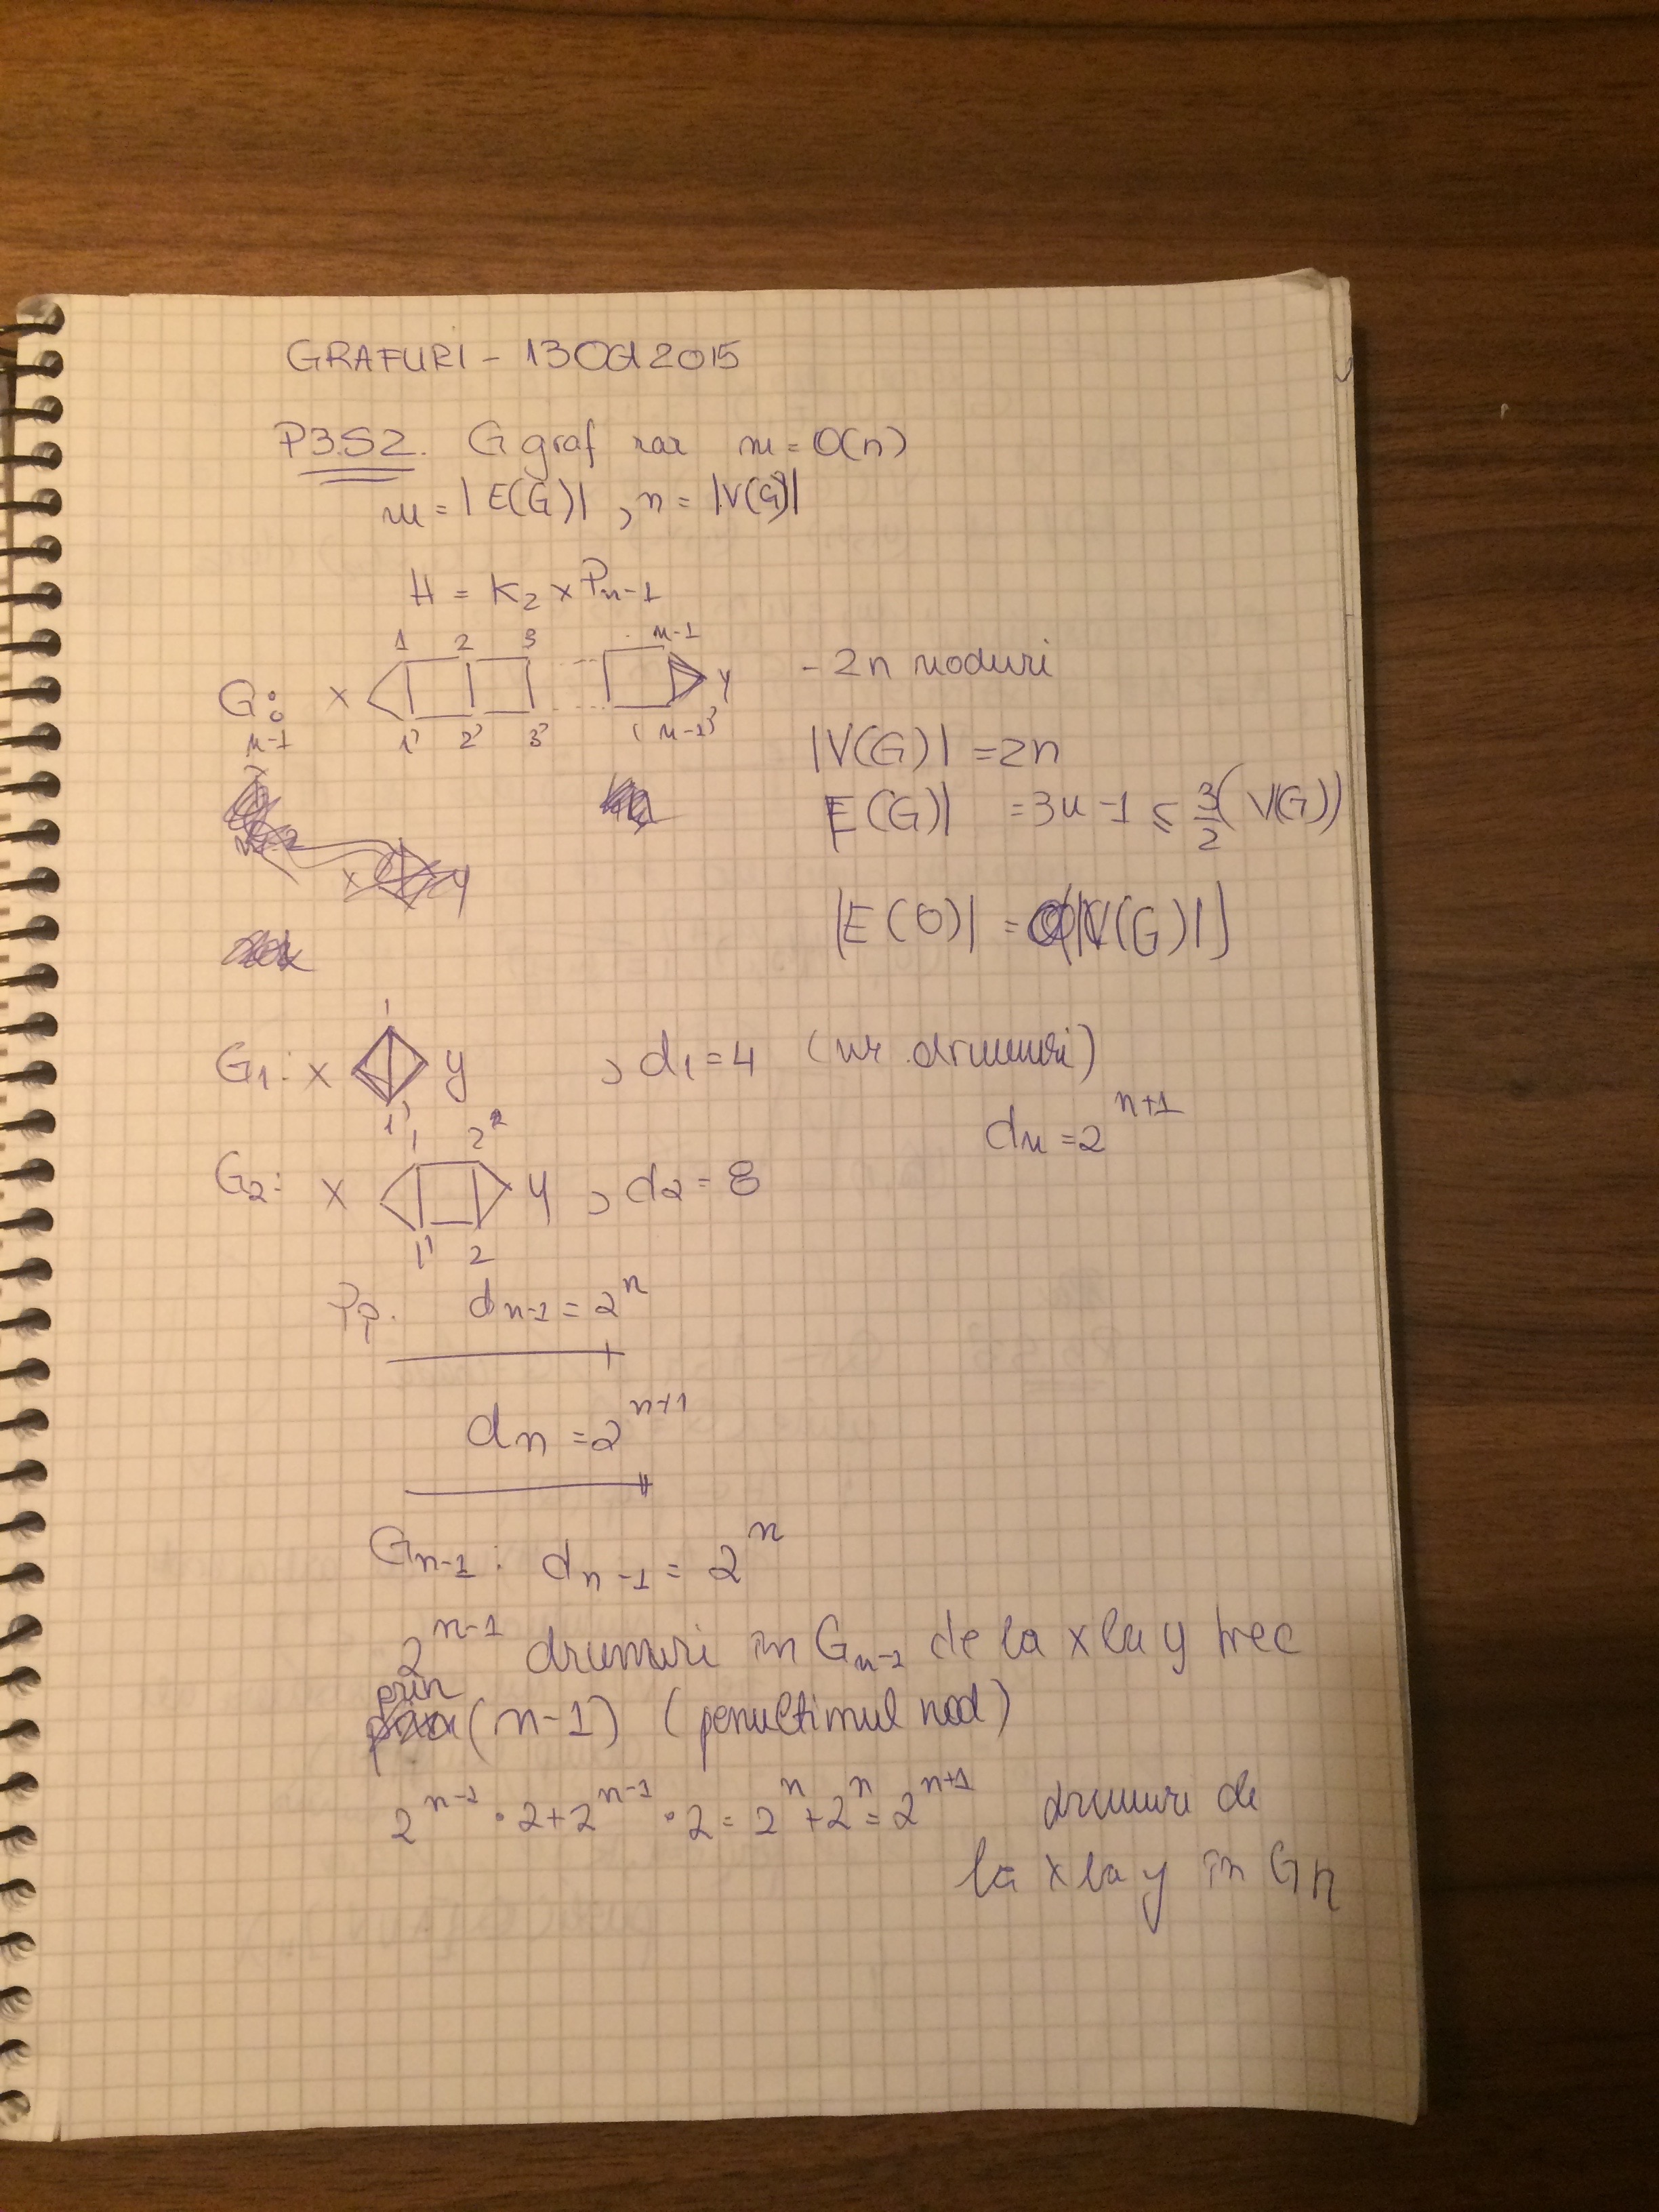 GRAFURI - 13Oct2015
P3.S2. G graf rar m = O(n)
m = |E(G)| , n = |V(G)|
H = K2 x Pn-1
1 2 3 n-1
G: x y
n-1 1' 2' 3' (n-1)'
- 2n noduri
|V(G)| = 2n
E(G)| = 3n-1 ≤ 3/2 (V(G))
|E(G)| = O(|V(G)|)
x y
1
G1: x y , d1 = 4 (nr drumuri)
1'
dn = 2^{n+1}
1 2
G2: x y , d2 = 8
1' 2
Pp. dn-1 = 2^n
dn = 2^{n+1}
Gn-1 : dn-1 = 2^n
2^{n-1} drumuri în Gn-1 de la x la y trec
prin (n-1) (penultimul nod)
2^{n-1} · 2 + 2^{n-1} · 2 = 2^n + 2^n = 2^{n+1} drumuri de
la x la y în Gn